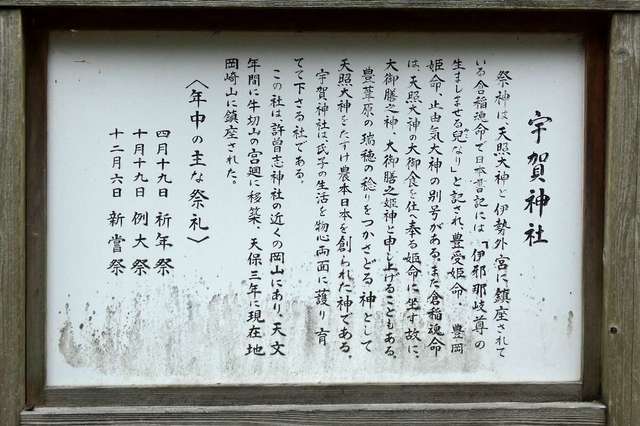 宇賀神社
祭神は、天照大神と伊勢外宮に鎮座されて
いる倉稲魂命で日本書記には「伊邪那岐尊の
生ましませる兒なり」と記され、豊受姫命、豊岡
姫命、止由気大神の別号がある。また倉稲魂命
は、天照大神の大御食を仕へ奉る姫命に坐す故に、
大御膳之神、大御膳之姫神と申し上げることもある。
豊葦原の瑞穂の稔りをつかさどる神として
天照大神をたすけ農本日本を創られた神である。
宇賀神社は氏子の生活を物心両面に護り育
てて下さる社である。
この社は、許曽志神社の近くの岡山にあり、天文
年間に牛切山の宮廻に移築、天保三年に現在地
岡崎山に鎮座された。
〈年中の主な祭礼〉
四月十九日 祈年祭
十月十九日 例大祭
十二月六日 新嘗祭